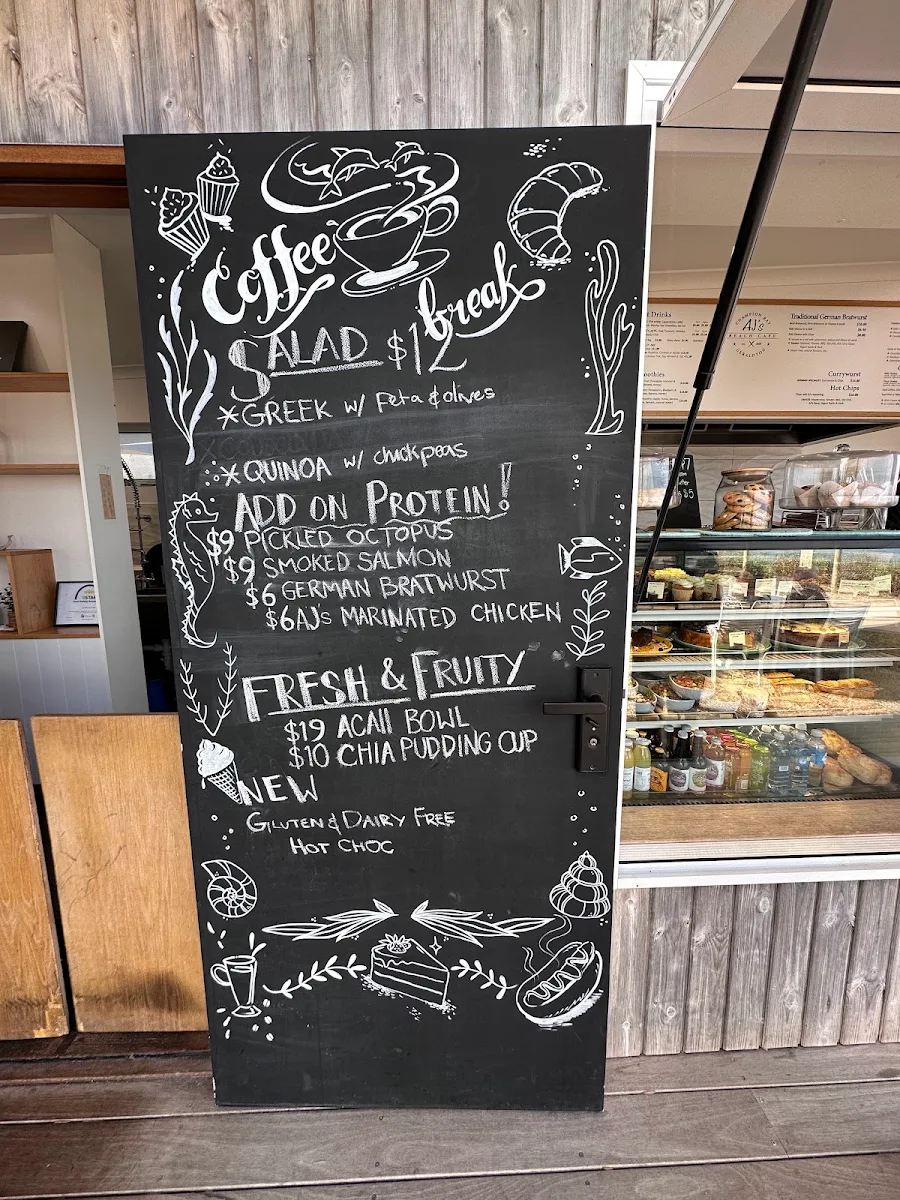 Coffee
break
SALAD $12
*GREEK w/ Feta & olives
*QUINOA w/ chickpeas
ADD ON PROTEIN!
$9 PICKLED OCTOPUS
$9 SMOKED SALMON
$6 GERMAN BRATWURST
$6 AJ's MARINATED CHICKEN
FRESH & FRUITY
$19 ACAII BOWL
$10 CHIA PUDDING CUP
NEW
GLUTEN & DAIRY FREE
HOT CHOC
Drinks
AJ's
Traditional German Bratwurst
Currywurst
Hot Chips
$5